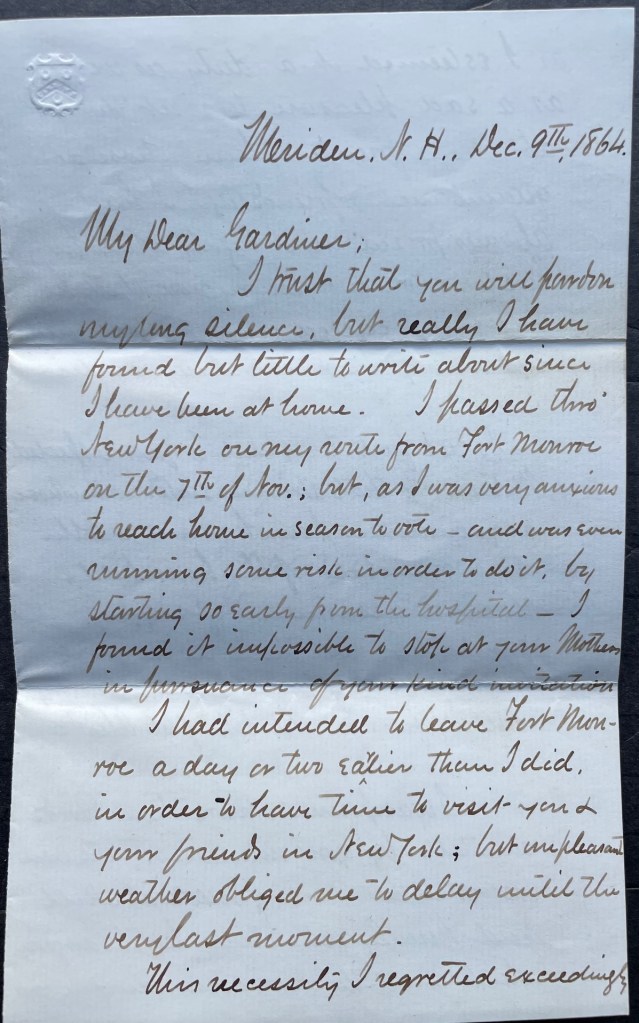 Meriden, N. H., Dec. 9th, 1864.
My Dear Gardiner;
I trust that you will pardon
my long silence, but really I have
found but little to write about since
I have been at home. I passed thro'
New York on my route from Fort Monroe
on the 7th of Nov.; but, as I was very anxious
to reach home in season to vote – and was even
running some risk in order to do it, by
starting so early from the hospital – I
found it impossible to stop at your Mothers
in pursuance of your kind invitation
I had intended to leave Fort Mon-
roe a day or two ealier than I did,
in order to have time to visit you &
your friends in New York; but unpleasant
weather obliged me to delay until the
very last moment.
This necessity I regretted exceedingly